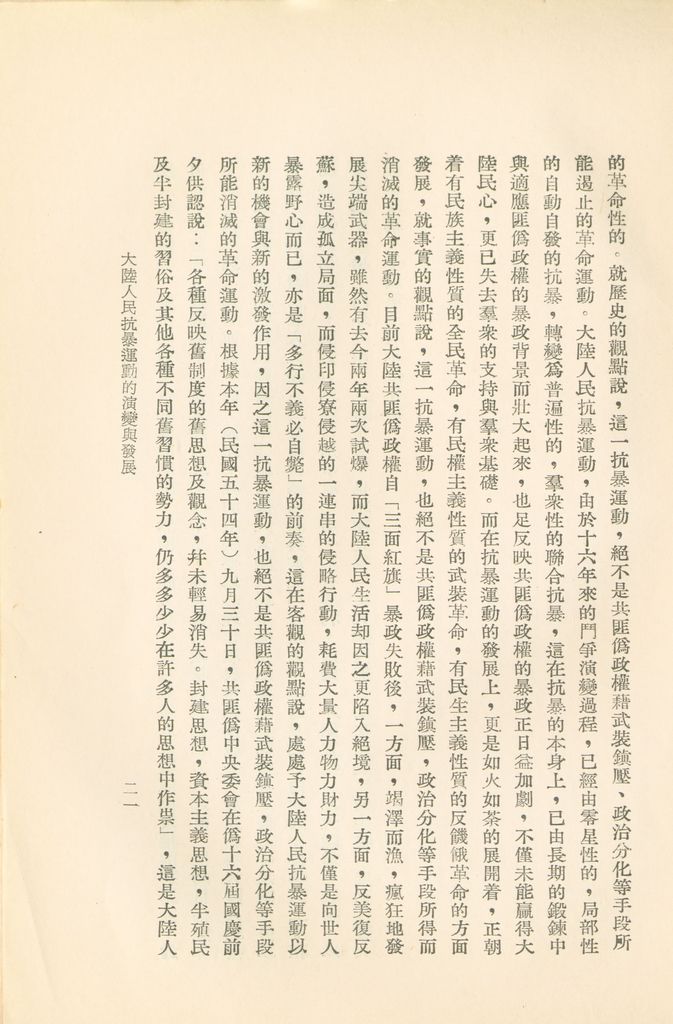 的革命性的。就歷史的觀點說，這一抗暴運動，絕不是共匪僞政權藉武裝鎮壓、政治分化等手段所
能遏止的革命運動。大陸人民抗暴運動，由於十六年來的鬥爭演變過程，已經由零星性的，局部性
的自動自發的抗暴，轉變爲普遍性的，羣衆性的聯合抗暴，這在抗暴的本身上，已由長期的鍛鍊中
與適應匪僞政權的暴政背景而壯大起來，也足反映共匪僞政權的暴政正日益加劇，不僅未能贏得大
陸民心，更已失去羣衆的支持與羣衆基礎。而在抗暴運動的發展上，更是如火如荼的展開着，正朝
着有民族主義性質的全民革命，有民權主義性質的武裝革命，有民生主義性質的反饑餓革命的方面
發展，就事實的觀點說，這一抗暴運動，也絕不是共匪僞政權藉武裝鎮壓，政治分化等手段所得而
消滅的革命運動。目前大陸共匪僞政權自「三面紅旗」暴政失敗後，一方面，竭澤而漁，瘋狂地發
展尖端武器，雖然有去今兩年兩次試爆，而大陸人民生活却因之更陷入絕境，另一方面，反美復反
蘇，造成孤立局面，而侵印侵寮侵越的一連串的侵略行動，耗費大量人力物力財力，不僅是向世人
暴露野心而已，亦是「多行不義必自斃」的前奏，這在客觀的觀點說，處處予大陸人民抗暴運動以
新的機會與新的激發作用，因之這一抗暴運動，也絕不是共匪僞政權藉武裝鎮壓，政治分化等手段
所能消滅的革命運動。根據本年（民國五十四年）九月三十日，共匪僞中央委會在僞十六屆國慶前
夕供認說：「各種反映舊制度的舊思想及觀念，幷未輕易消失。封建思想，資本主義思想，半殖民
及半封建的習俗及其他各種不同舊習慣的勢力，仍多多少少在許多人的思想中作祟」，這是大陸人
大陸人民抗暴運動的演變與發展
二一